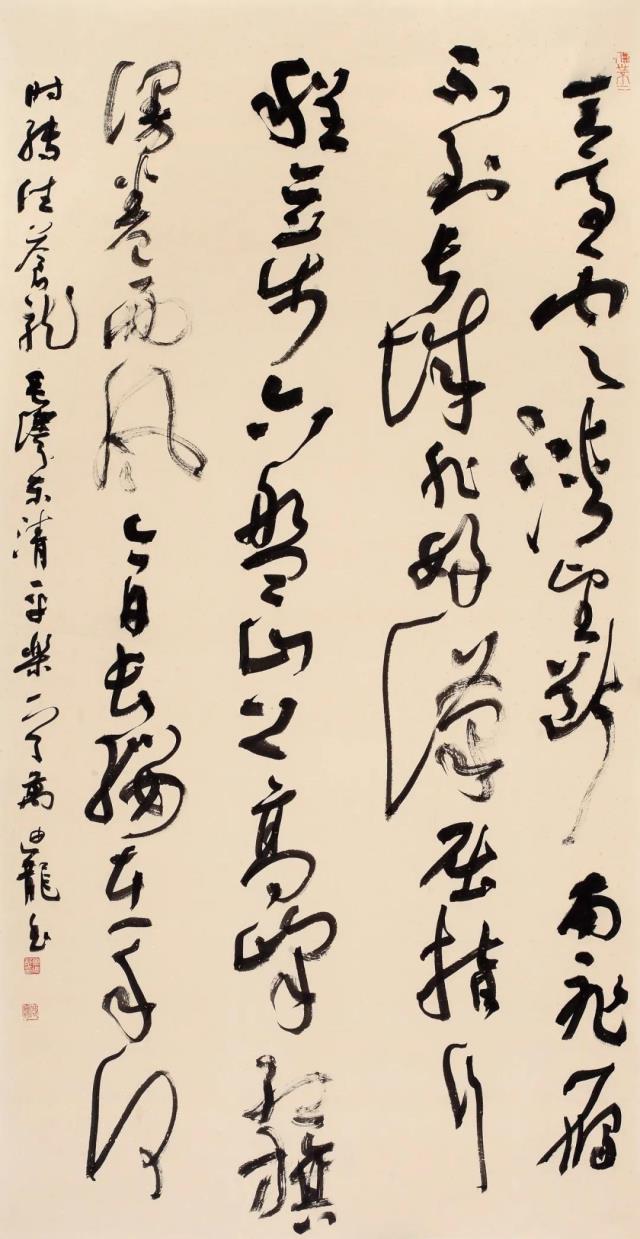 天高云淡望断南飞雁
不到长城非好漢屈指行
程二万六盘山上高峰红旗
漫卷西风今日长缨在手何
时缚住蒼龙毛澤东清平樂